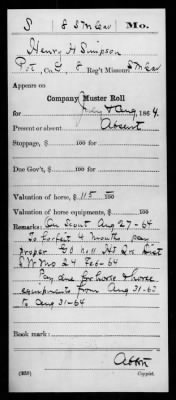 S 8 S M Cav Mo.
Henry H Simpson
Pvt, Co. G, 8 Reg't Missouri S M Cav
Appears on
Company Muster Roll
for July & Aug, 1864.
Present or absent Absent
Stoppage, $ 100 for
Due Gov't, $ 100 for
Valuation of horse, $ 115 100
Valuation of horse equipments, $ 100
Remarks: On Scout Aug 27-64
To forfeit 4 months pay
proper G O No 11 Hd Qrs Dist
S W Mo 24 Feb-64
Pay due for horse & horse
equipments from Aug 31-63
to Aug 31-64
Book mark:
(858) Copyist.